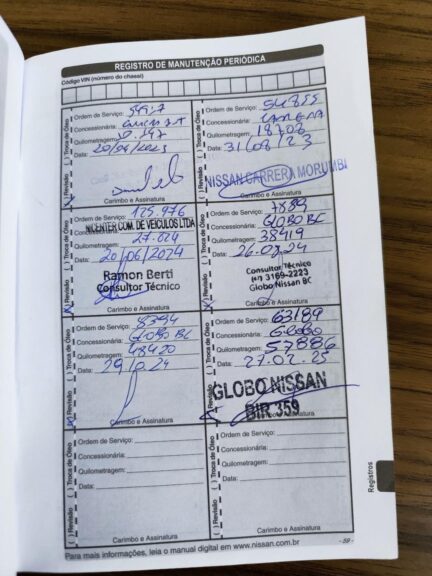 REGISTRO DE MANUTENÇÃO PERIÓDICA
Código VIN (número do chassi)
( ) Revisão ( ) Troca de Óleo
Ordem de Serviço:
Concessionária:
Quilometragem:
Data: 20/04/2023
Carimbo e Assinatura
( ) Revisão ( ) Troca de Óleo
Ordem de Serviço:
Concessionária: CARRERA
Quilometragem: 18708
Data: 31/08/23
NISSAN CARRERA MORUMBI
Carimbo e Assinatura
Revisão ( ) Troca de Óleo
Ordem de Serviço: 125.976
Concessionária:
NICENTER COM. DE VEICULOS LTDA
Quilometragem: 27.024
Data: 20/06/2024
Ramon Berti
Consultor Técnico
Carimbo e Assinatura
Revisão ( ) Troca de Óleo
Ordem de Serviço: 7889
Concessionária: GLOBO BC
Quilometragem: 38419
Data: 26.09.24
Consultor Técnico
3169-2223
Globo Nissan BC
Carimbo e Assinatura
Revisão ( ) Troca de Óleo
Ordem de Serviço:
Concessionária: GLOBO BC
Quilometragem: 48420
Data:
Carimbo e Assinatura
Revisão ( ) Troca de Óleo
Ordem de Serviço: 63189
Concessionária: Globo
Quilometragem: 57886
Data: 27.02.25
GLOBO NISSAN
BIR 359
Carimbo e Assinatura
( ) Revisão ( ) Troca de Óleo
Ordem de Serviço:
Concessionária:
Quilometragem:
Data:
Carimbo e Assinatura
( ) Revisão ( ) Troca de Óleo
Ordem de Serviço:
Concessionária:
Quilometragem:
Data:
Carimbo e Assinatura
Registros
Para mais informações, leia o manual digital em www.nissan.com.br
- 59 -